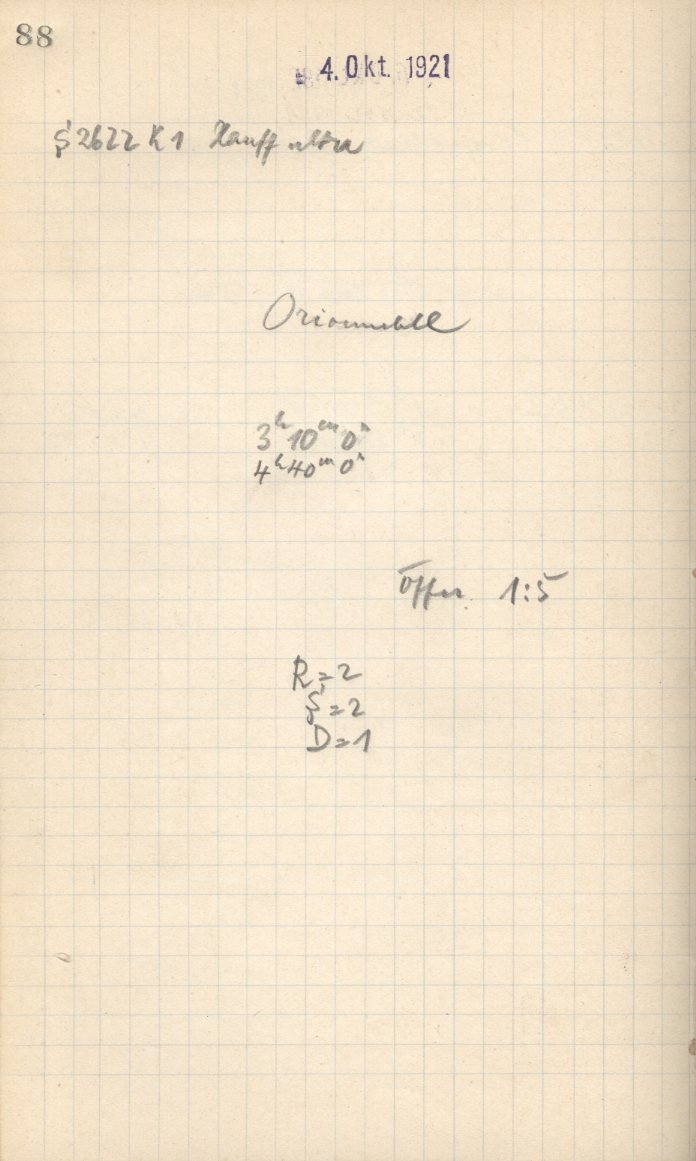 88
4. Okt. 1921
S 2622 K 1 Hauff ultra
Orionnebel
3h 10m 0s
4h 40m 0s
Öffn. 1:5
R = 2
S = 2
D = 1